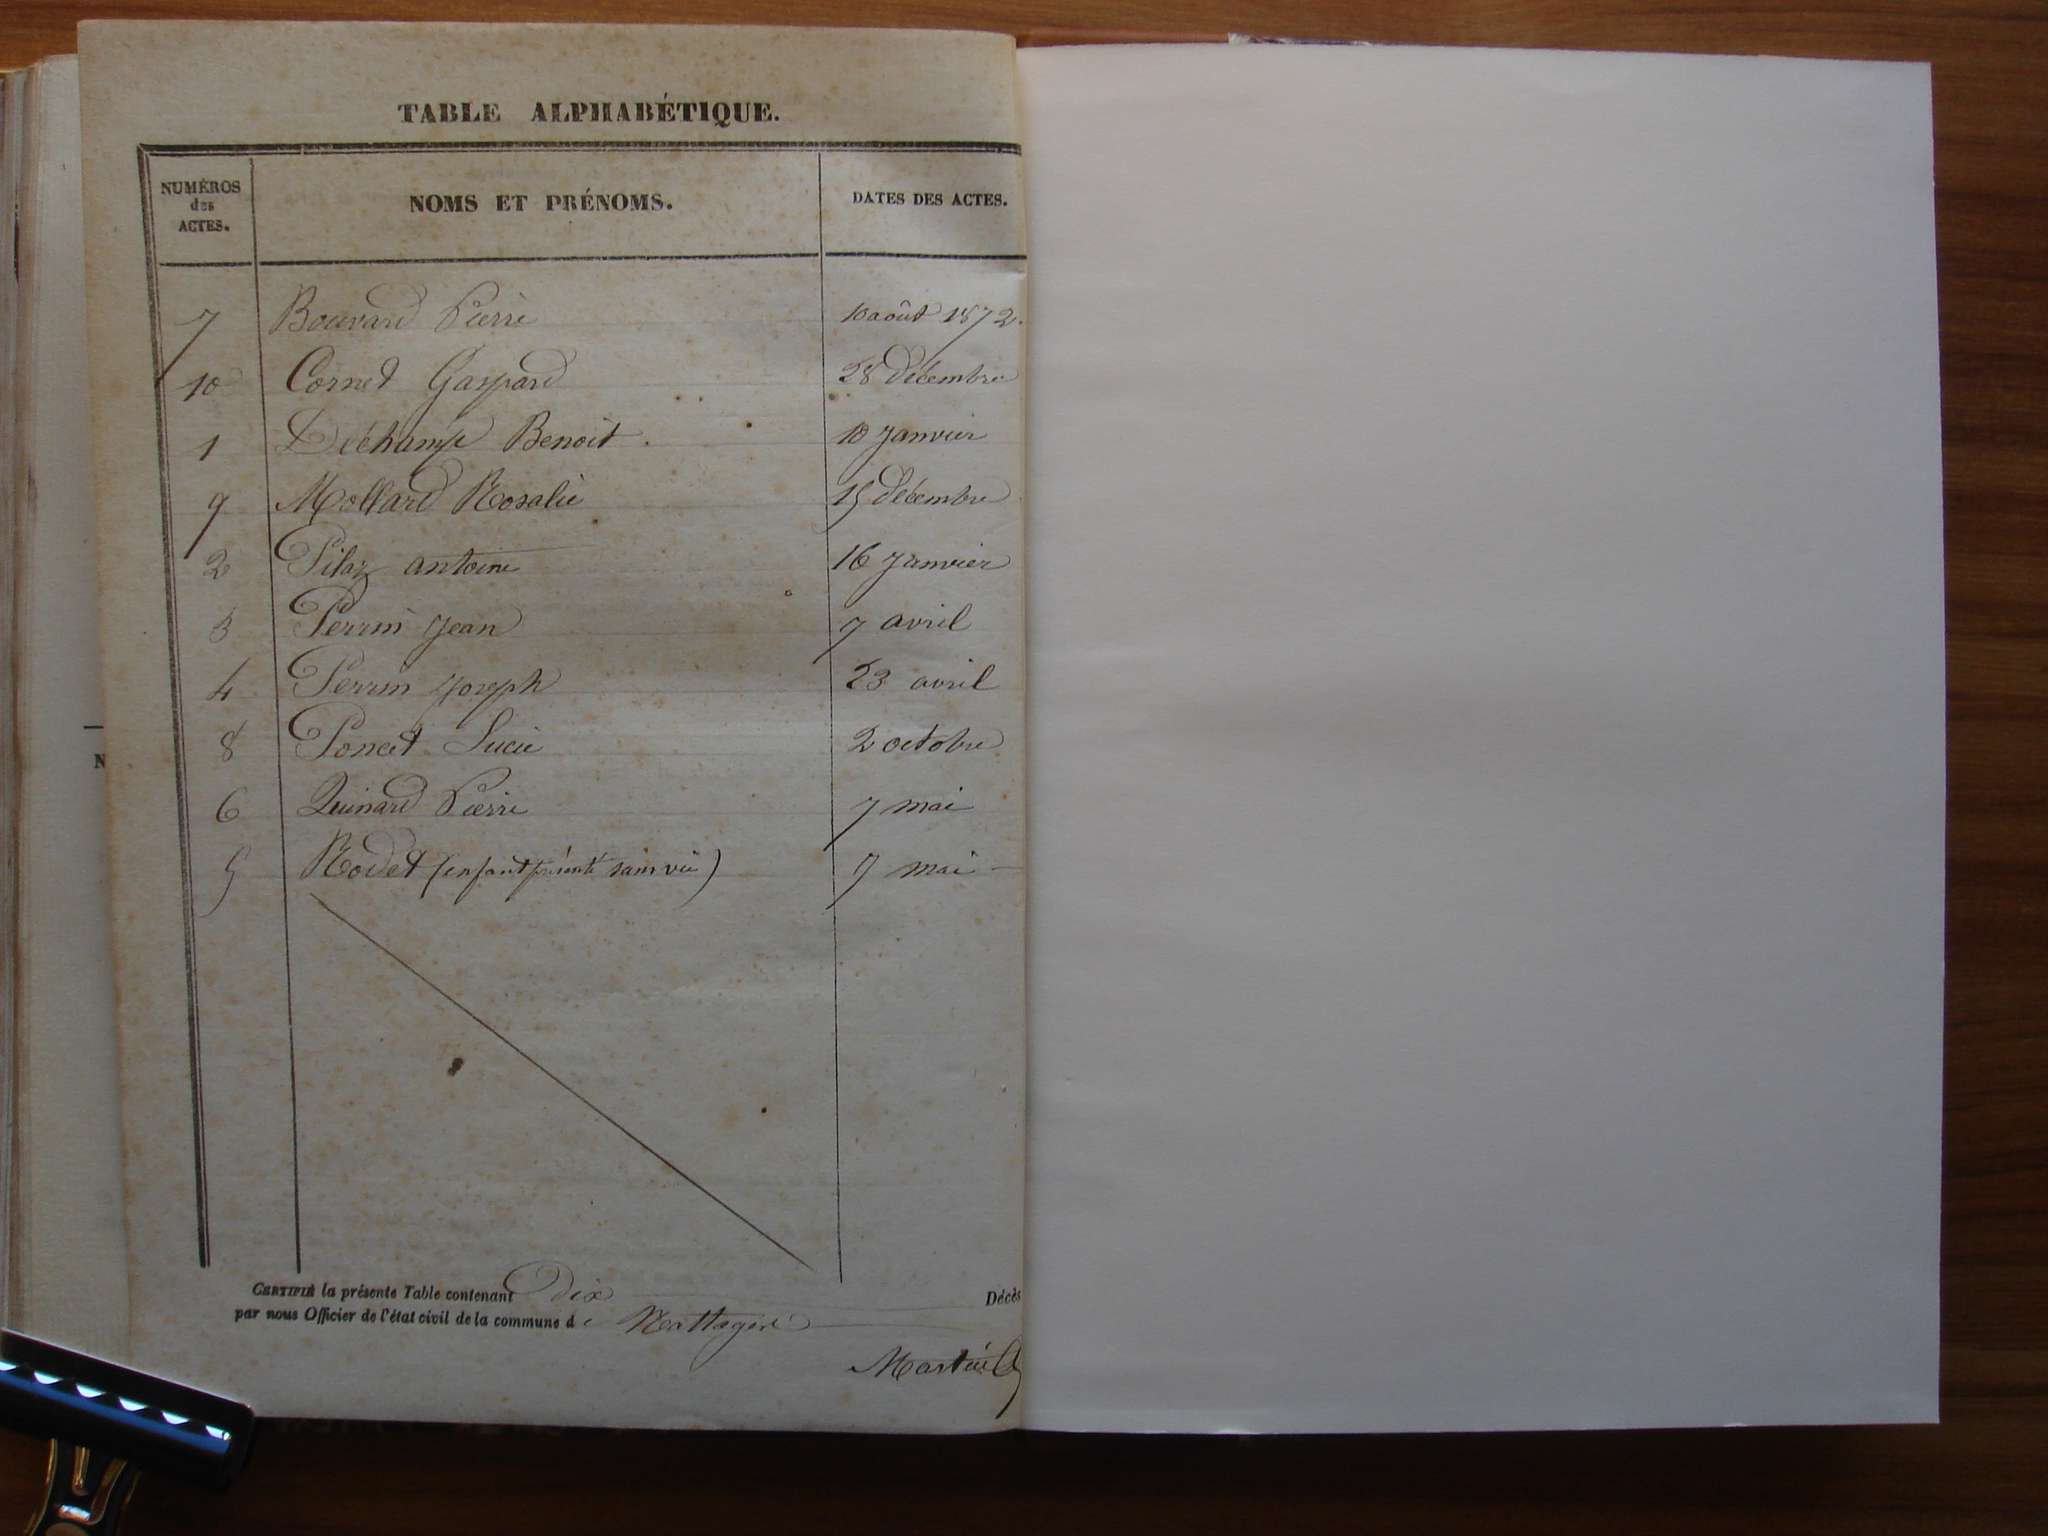 TABLE ALPHABÉTIQUE.
NUMÉROS des ACTES. NOMS ET PRÉNOMS. DATES DES ACTES.
7 Bouvard Pierre 10 août 1872.
10 Cornet Gaspard 28 décembre
1 Déchamp Benoit. 10 Janvier
9 Mollard Rosalie 15 décembre
2 Pilaz antoine 16 Janvier
3 Perrin Jean 7 avril
4 Perrin Joseph 23 avril
8 Poncet Lucie 2 octobre
6 Quinard Pierre 7 mai
5 Rodet (enfant présenté sans vie) 7 mai
CERTIFIÉ la présente Table contenant Dix Décès
par nous Officier de l'état civil de la commune de Nattages
N